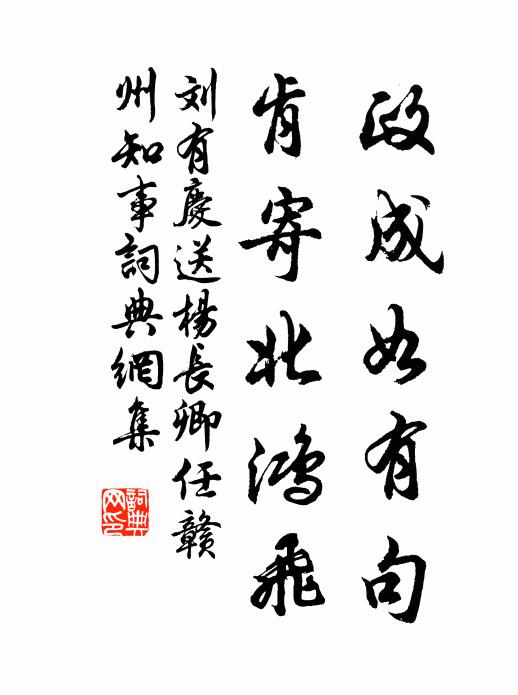 政成如有句
肯寄北鸿飛
刘有慶送楊長卿任贛
州知事詞典網集
詞典
网印